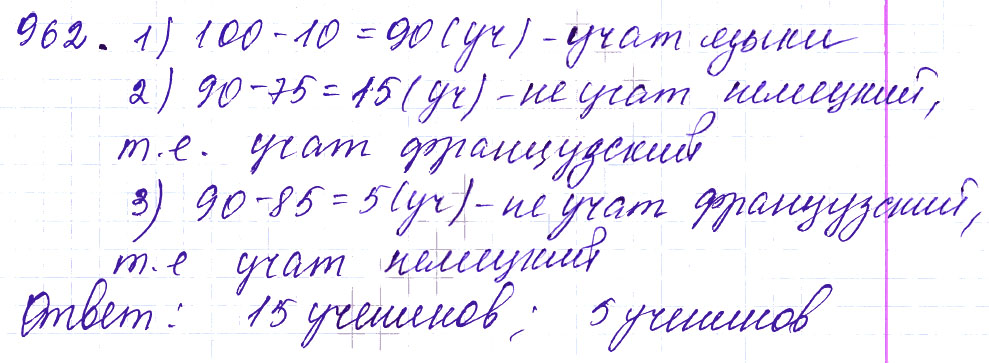 962. 1) 100 - 10 = 90 (уч) - учат языки
2) 90 - 75 = 15 (уч) - не учат немецкий,
т.е. учат французский
3) 90 - 85 = 5 (уч) - не учат французский,
т.е учат немецкий
Ответ: 15 учеников; 5 учеников